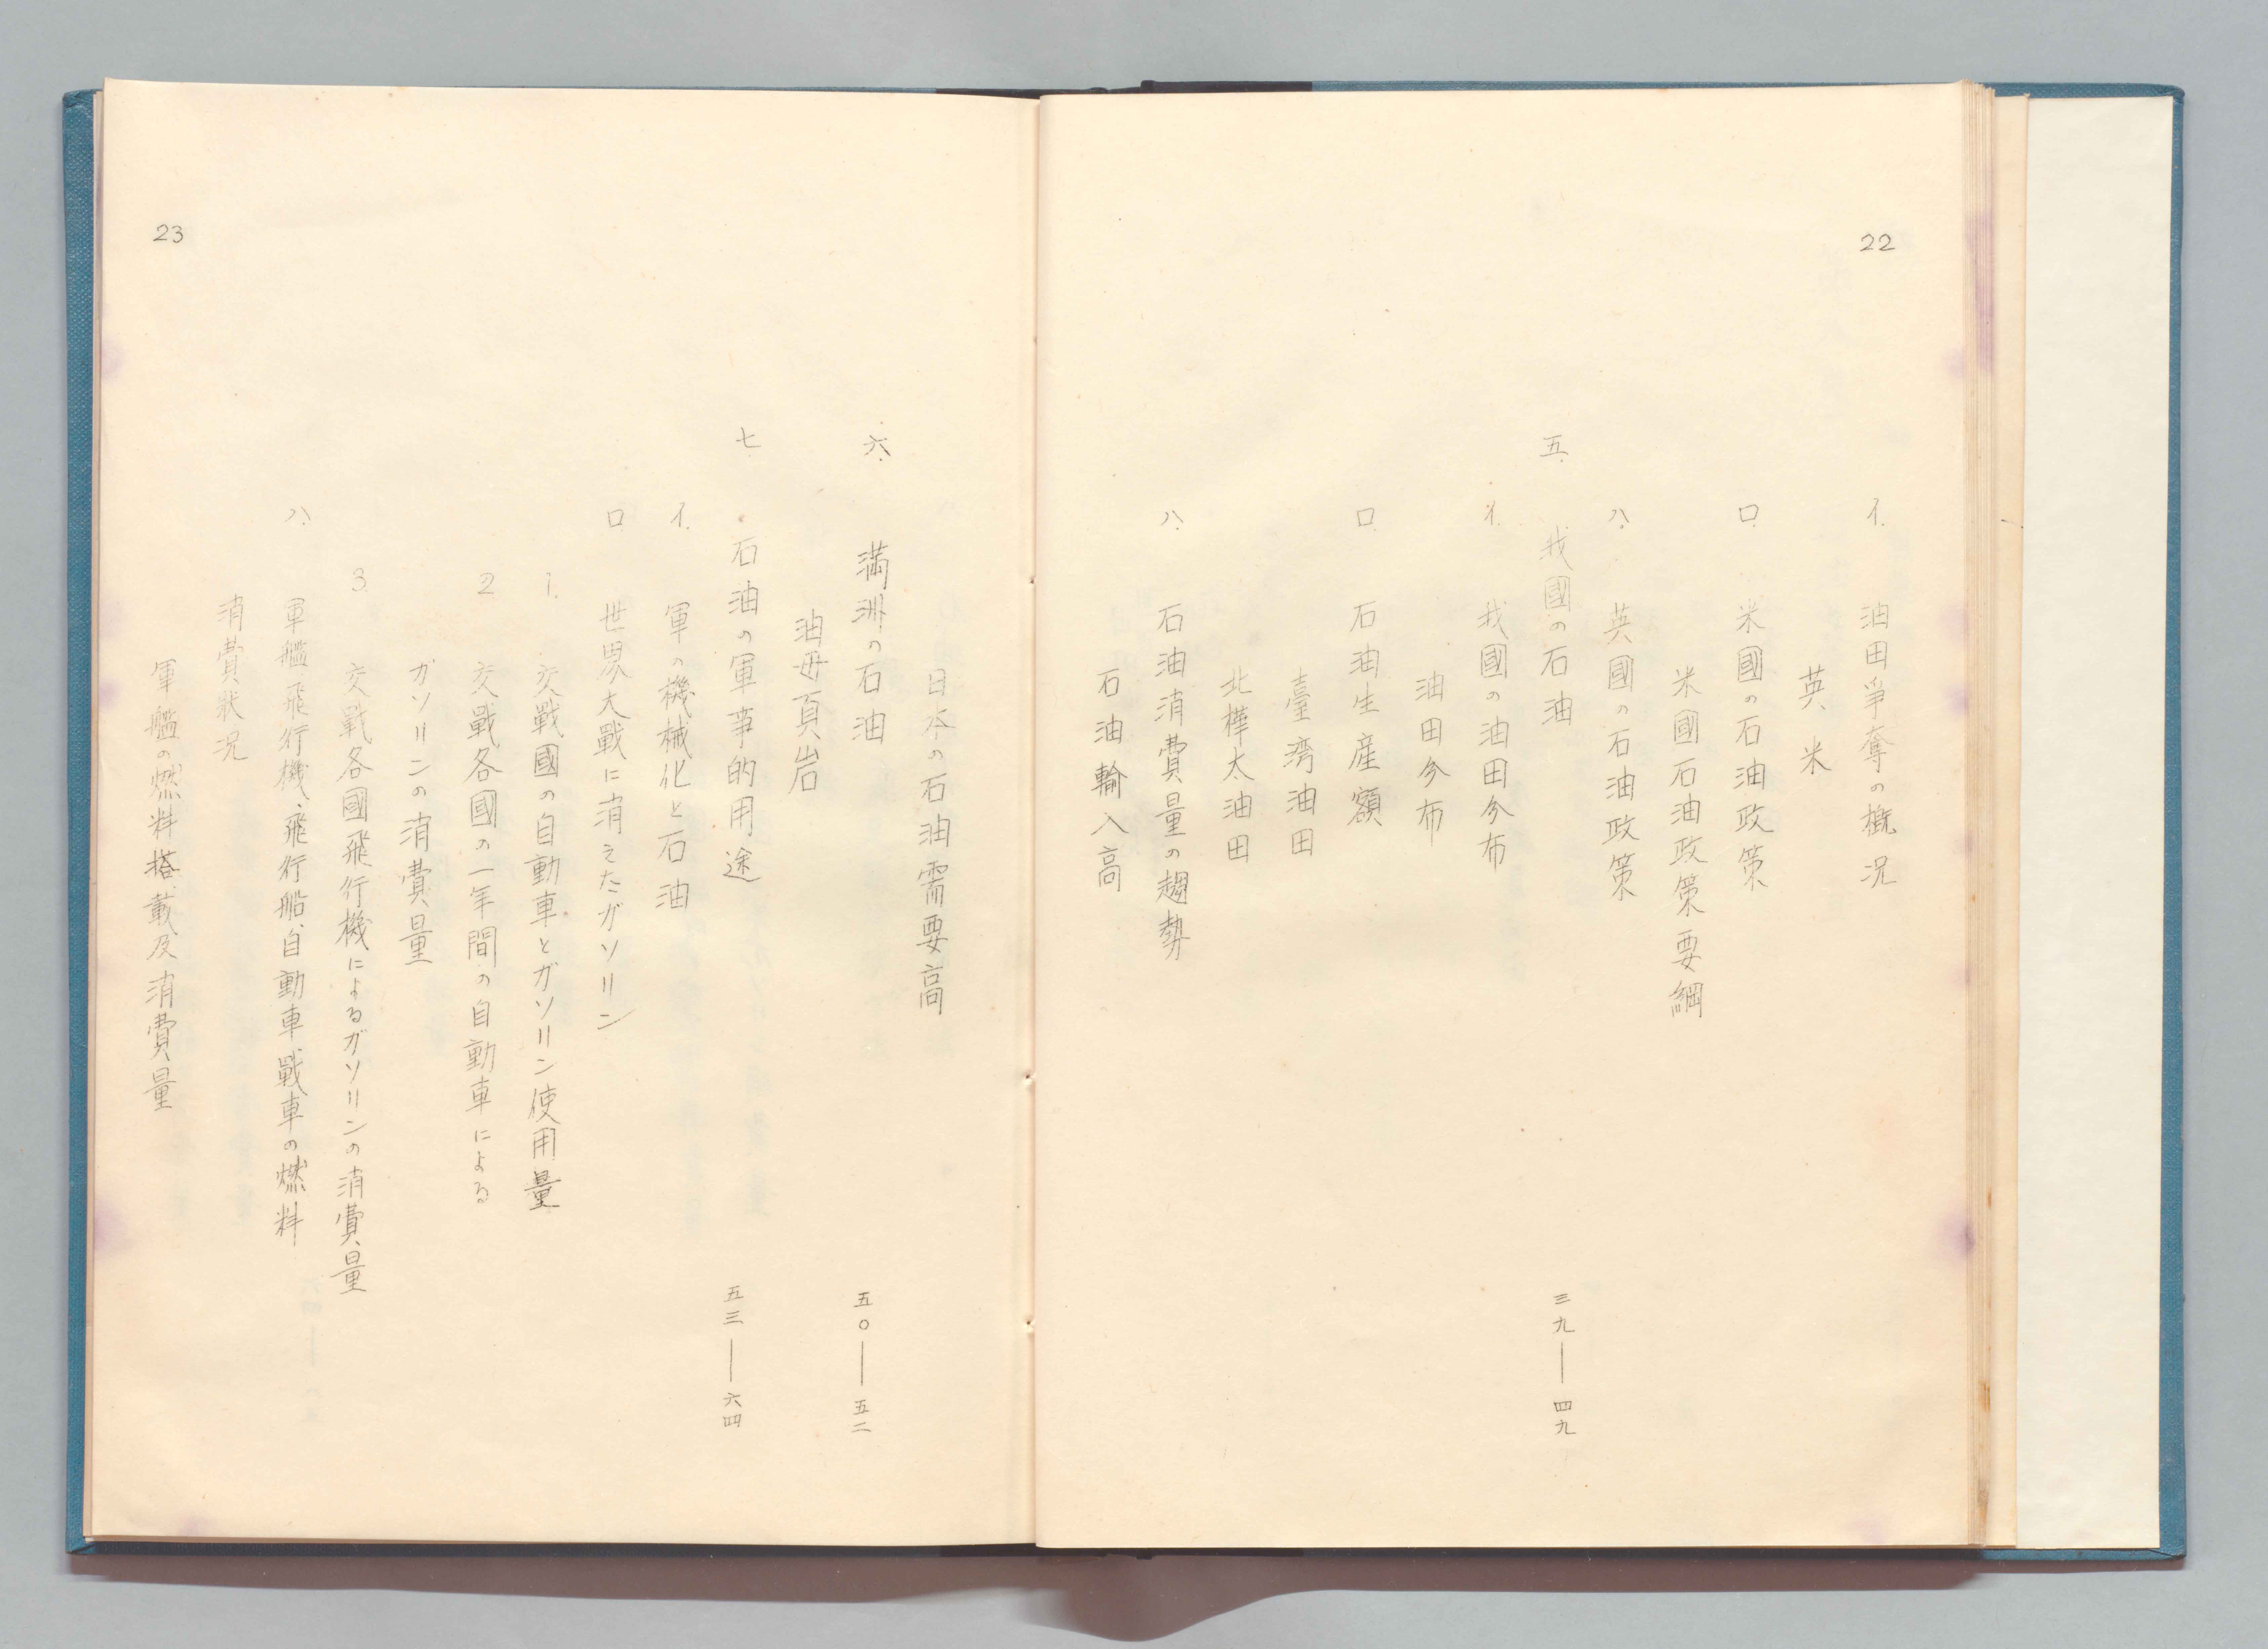 22
イ. 油田爭奪の概況
英米
ロ. 米國の石油政策
米國石油政策要綱
ハ. 英國の石油政策
五. 我國の石油 三九―四九
イ. 我國の油田分布
油田分布
ロ. 石油生産額
臺湾油田
北樺太油田
ハ. 石油消費量の趨勢
石油輸入高
日本の石油需要高
六. 満洲の石油 五〇―五二
油母頁岩
七. 石油の軍事的用途 五三―六四
イ. 軍の機械化と石油
ロ. 世界大戰に消えたガソリン
1. 交戰國の自動車とガソリン使用量
2. 交戰各國の一年間の自動車による
ガソリンの消費量
3. 交戰各國飛行機によるガソリンの消費量
ハ. 軍艦、飛行機、飛行船、自動車戰車の燃料
消費狀況
軍艦の燃料搭載及消費量
23